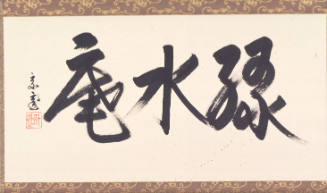 緑水庵